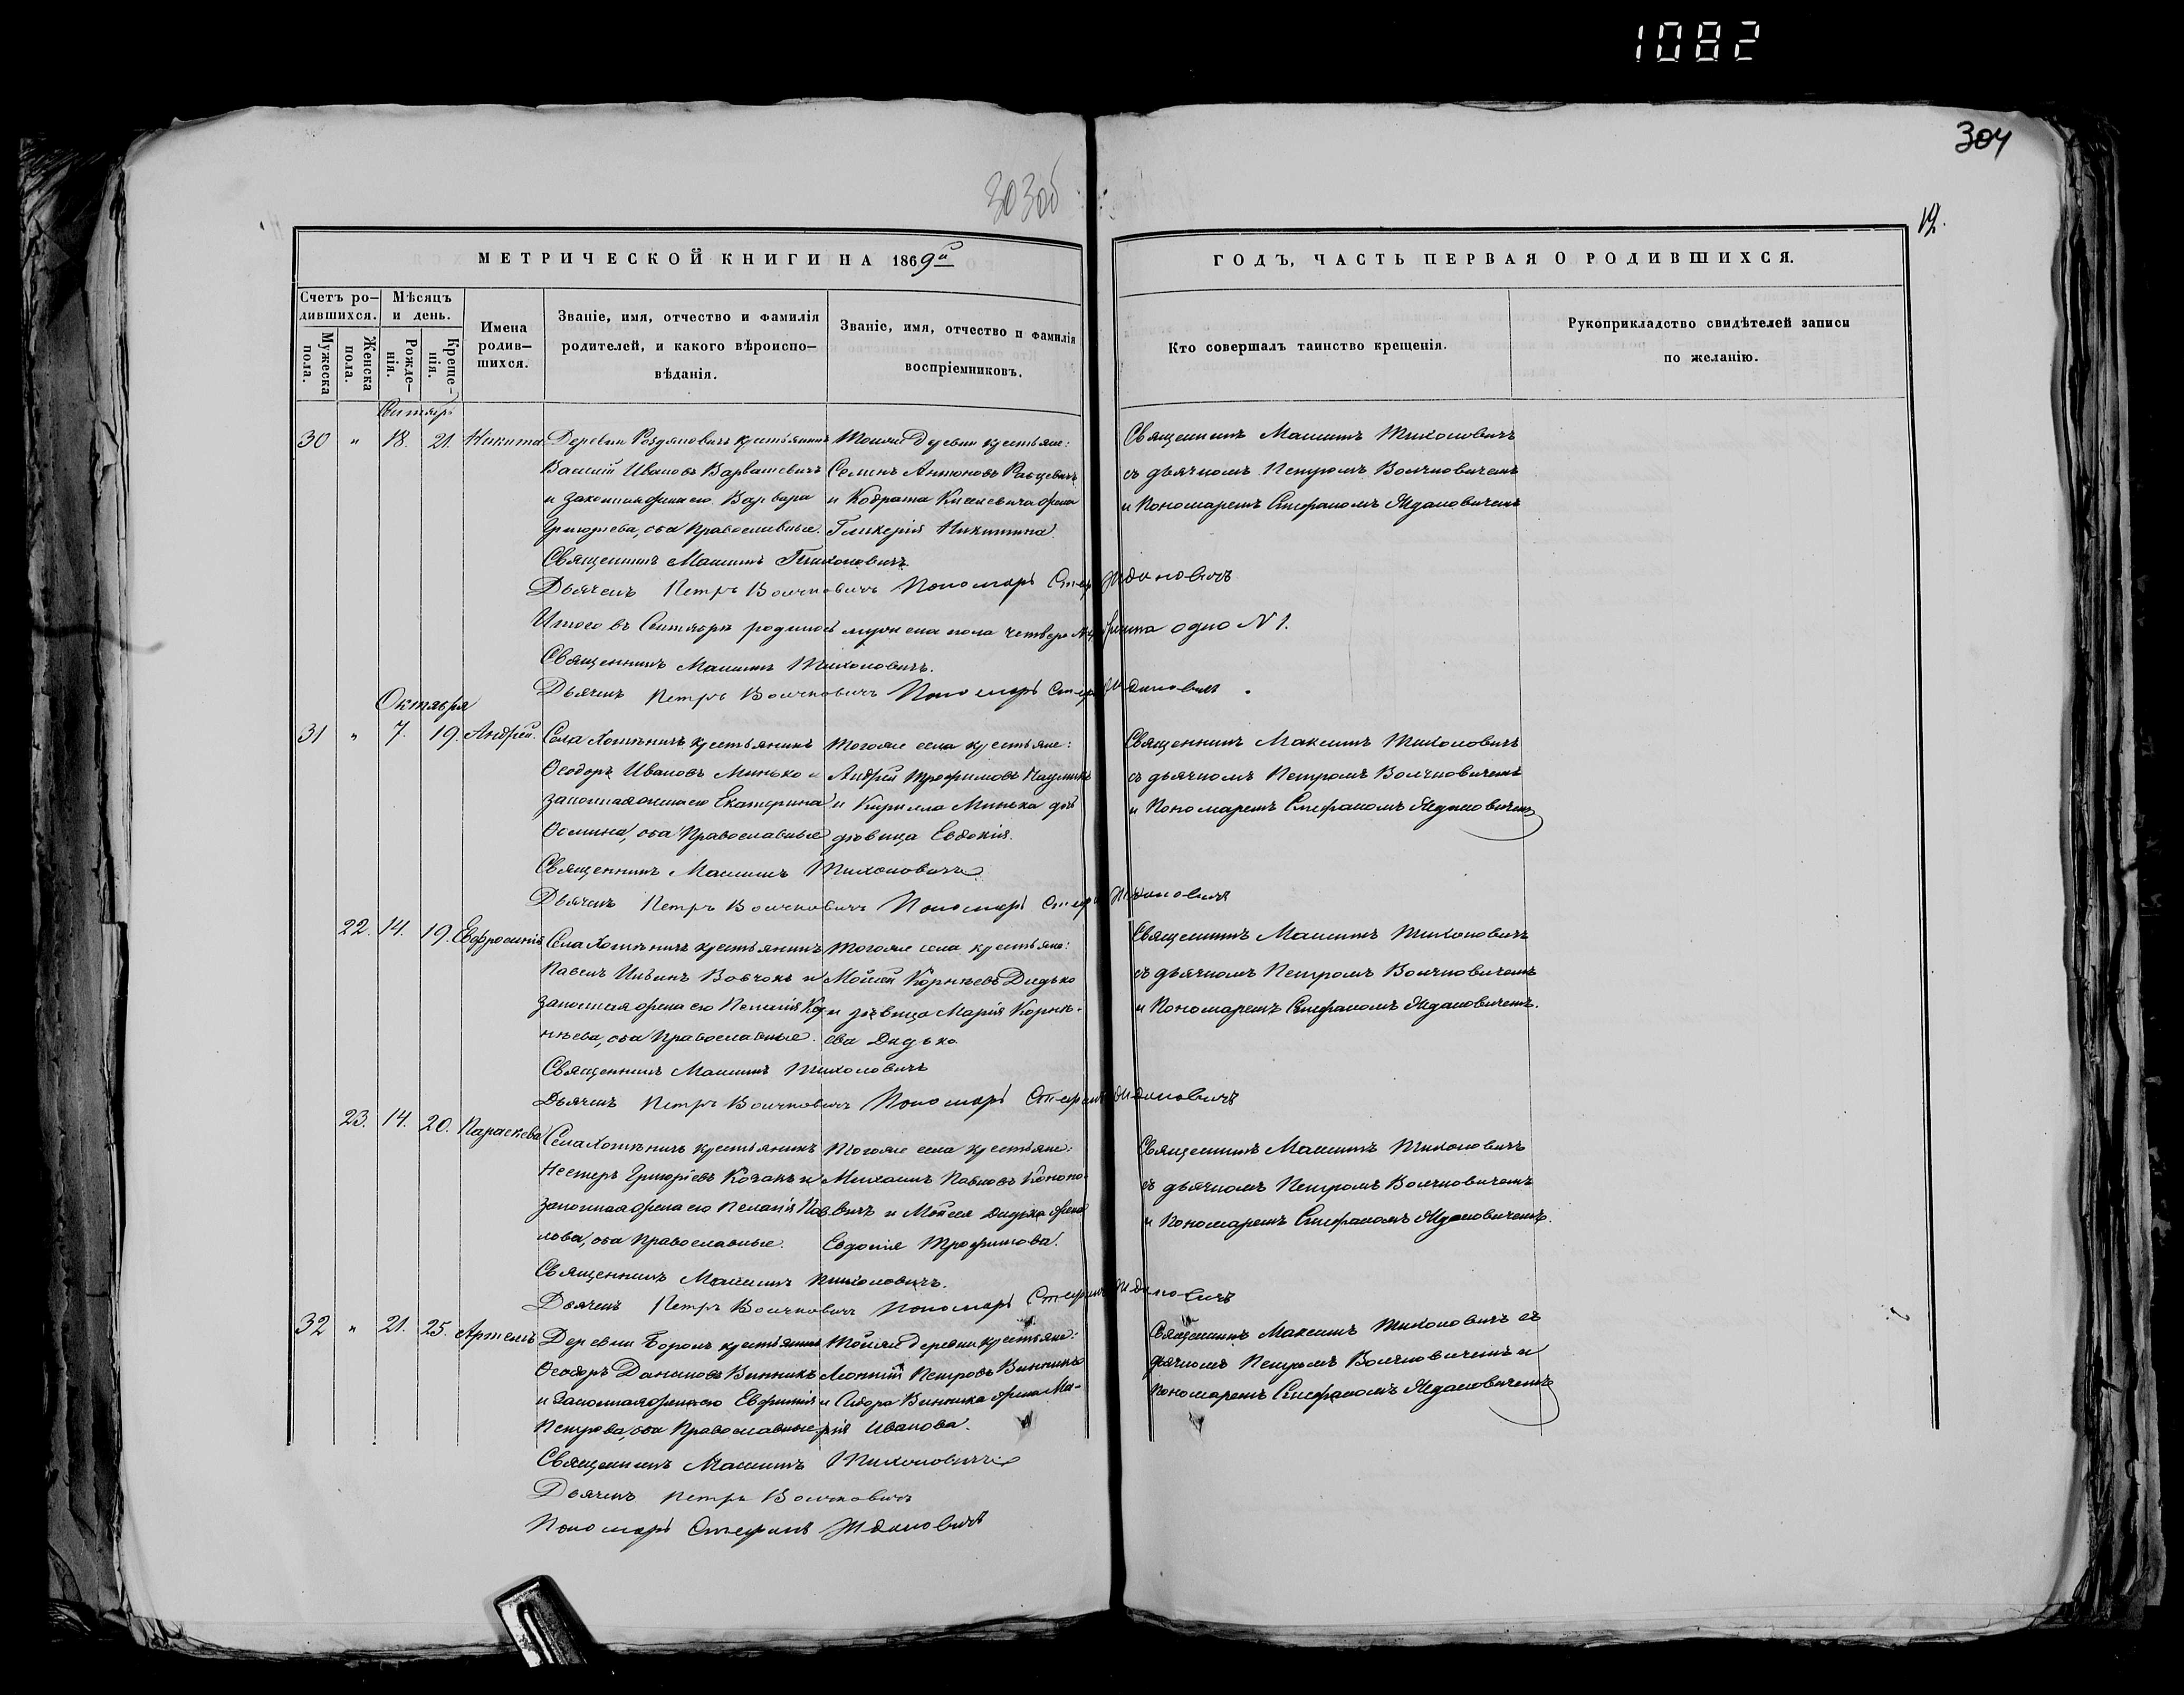 1082
304
303об
19.
МЕТРИЧЕСКОЙ КНИГИ НА 1869й
ГОДЪ, ЧАСТЬ ПЕРВАЯ О РОДИВШИХСЯ.
Счетъ ро-
дившихся.
Мужеска
пола.
Женска
пола.
Мѣсяцъ
и день.
Рожде-
нія.
Креще-
нія.
Имена
родив-
шихся.
Званіе, имя, отчество и фамилія
родителей, и какого вѣроиспо-
вѣданія.
Званіе, имя, отчество и фамилія
воспріемниковъ.
Кто совершалъ таинство крещенія.
Рукоприкладство свидѣтелей записи
по желанію.
30 " 18. 21. Никита
крестьянинъ
Василій Ивановъ
и законная жена его Варвара
Григорьева, оба Православные.
Тойже деревни крестьяне:
Семенъ Антоновъ
и Кодрата жена
Гликерія Никитина.
Священникъ Максимъ Тихоновичъ
съ дьячкомъ Петромъ Волчковичемъ
и Пономаремъ Стефаномъ Ждановичемъ
Священникъ Максимъ Тихоновичъ
Дьячекъ Петръ Волчковичъ Пономарь Стеф Ждановичъ
Итого въ Сентябрѣ родилось мужеска пола четверо женска одно N 1.
Священникъ Максимъ Тихоновичъ.
Дьячекъ Петръ Волчковичъ Пономарь Стеф Ждановичъ
Октября
31 " 7. 19. Андрей.
Села Хотыничъ крестьянинъ
Ѳеодоръ Ивановъ Минько и
законная жена его Екатерина
оба Православные
Тогоже села крестьяне:
Андрей Трофимовъ
и Кирилла Минька
дѣвица Евдокія.
Священникъ Максимъ Тихоновичъ
съ дьячкомъ Петромъ Волчковичемъ
и Пономаремъ Стефаномъ Ждановичемъ
Священникъ Максимъ Тихоновичъ
Дьячекъ Петръ Волчковичъ Пономарь Стеф Ждановичъ
22. 14. 19. Евфросинія
Села Хотыничъ крестьянинъ
Павелъ Ильинъ Вовчокъ и
законная жена его Пелагія Кор-
нѣева, оба Православные.
Тогоже села крестьяне:
Мойсей Корнѣевъ Дидько
и дѣвица Марія Корнѣ-
ева Дидько
Священникъ Максимъ Тихоновичъ
съ дьячкомъ Петромъ Волчковичемъ
и Пономаремъ Стефаномъ Ждановичемъ.
Священникъ Максимъ Тихоновичъ
Дьячекъ Петръ Волчковичъ Пономарь Стефанъ Ждановичъ
23. 14. 20. Параскева
Села Хотыничъ крестьянинъ
Нестеръ Григорьевъ Козакъ и
законная жена его Пелагія Пав-
лова, оба Православные.
Тогоже села крестьяне:
Михаилъ Павловъ Конопо-
вичъ и Мойсея Дидька жена
Евдокія Трофимова.
Священникъ Максимъ Тихоновичъ
съ дьячкомъ Петромъ Волчковичемъ
и Пономаремъ Стефаномъ Ждановичемъ.
Священникъ Максимъ Тихоновичъ.
Дьячекъ Петръ Волчковичъ Пономарь Стефанъ Ждановичъ
32 " 21. 25. Артемъ
Деревни Борокъ крестьянинъ
Ѳеодоръ Даниловъ Винникъ
и законная жена его Евфимія
Петрова, оба Православные.
Тойже деревни крестьяне:
Леонтій Петровъ Винникъ
и Сидора Винника жена Ма-
рія Иванова.
Священникъ Максимъ Тихоновичъ съ
дьячкомъ Петромъ Волчковичемъ и
Пономаремъ Стефаномъ Ждановичемъ
Священникъ Максимъ Тихоновичъ
Дьячекъ Петръ Волчковичъ
Пономарь Стефанъ Ждановичъ